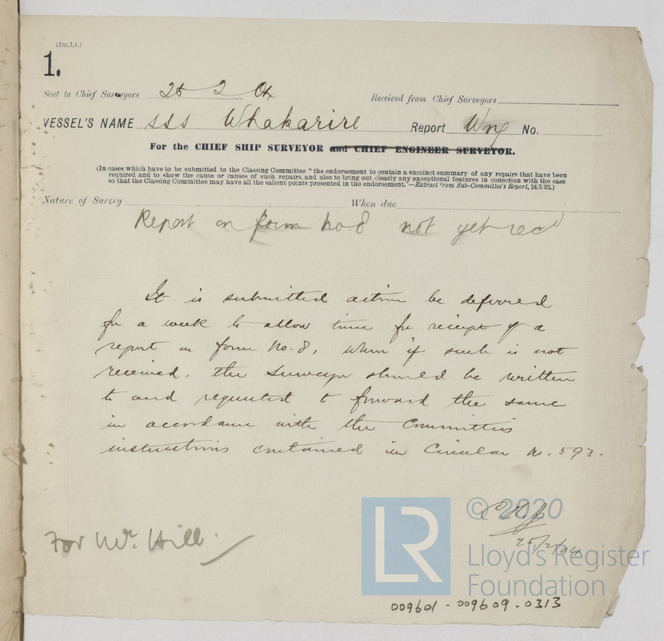 (1m,1,4.)
1.
Sent to Chief Surveyors 25 2 04 Received from Chief Surveyors
VESSEL'S NAME sss Whakarire Report Wng No.
For the CHIEF SHIP SURVEYOR and CHIEF ENGINEER SURVEYOR.
(In cases which have to be submitted to the Classing Committee "the endorsement to contain a succinct summary of any repairs that have been
required and to show the cause or causes of such repairs, and also to bring out clearly any exceptional features in conection with the case
so that the Classing Committee may have all the salient points presented in the endorsement."—Extract from Sub-Committee's Report, 24/5/92.)
Nature of Survey When due
Report on form No 8 not yet recd
It is submitted action be deferred
for a week to allow time for receipt of a
report on form No. 8, when if such is not
received, the Surveyor should be written
to and requested to forward the same
in accordance with the Committee's
instructions contained in Circular No. 593.
25/2/04
For Mr. Hill.
LR
© 2020
Lloyd's Register
Foundation
009601-009609-0313